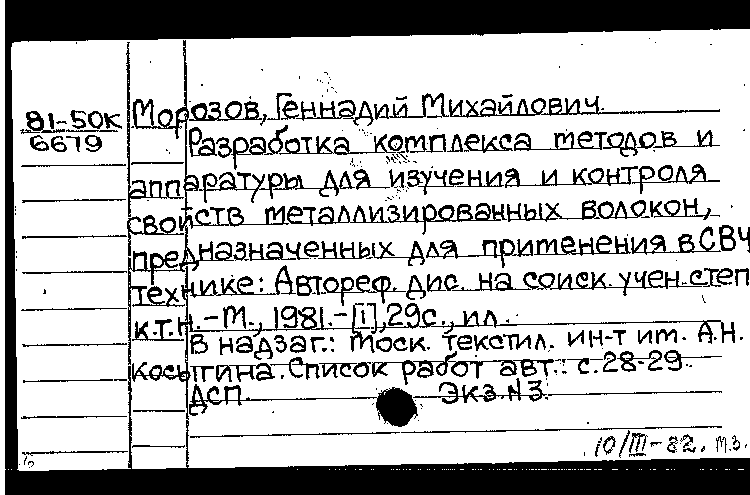 81-50К
6679
Морозов, Геннадий Михайлович.
Разработка комплекса методов и
аппаратуры для изучения и контроля
свойств металлизированных волокон,
предназначенных для применения в СВЧ
технике: Автореф. дис. на соиск. учен. степ.
к.т.н. - М., 1981. - [1], 29 с., ил.
В надзаг.: Моск. текстил. ин-т им. А.Н.
Косыгина. Список работ авт.: с. 28-29.
ДСП. Экз. N 3.
10/III-82. М.З.